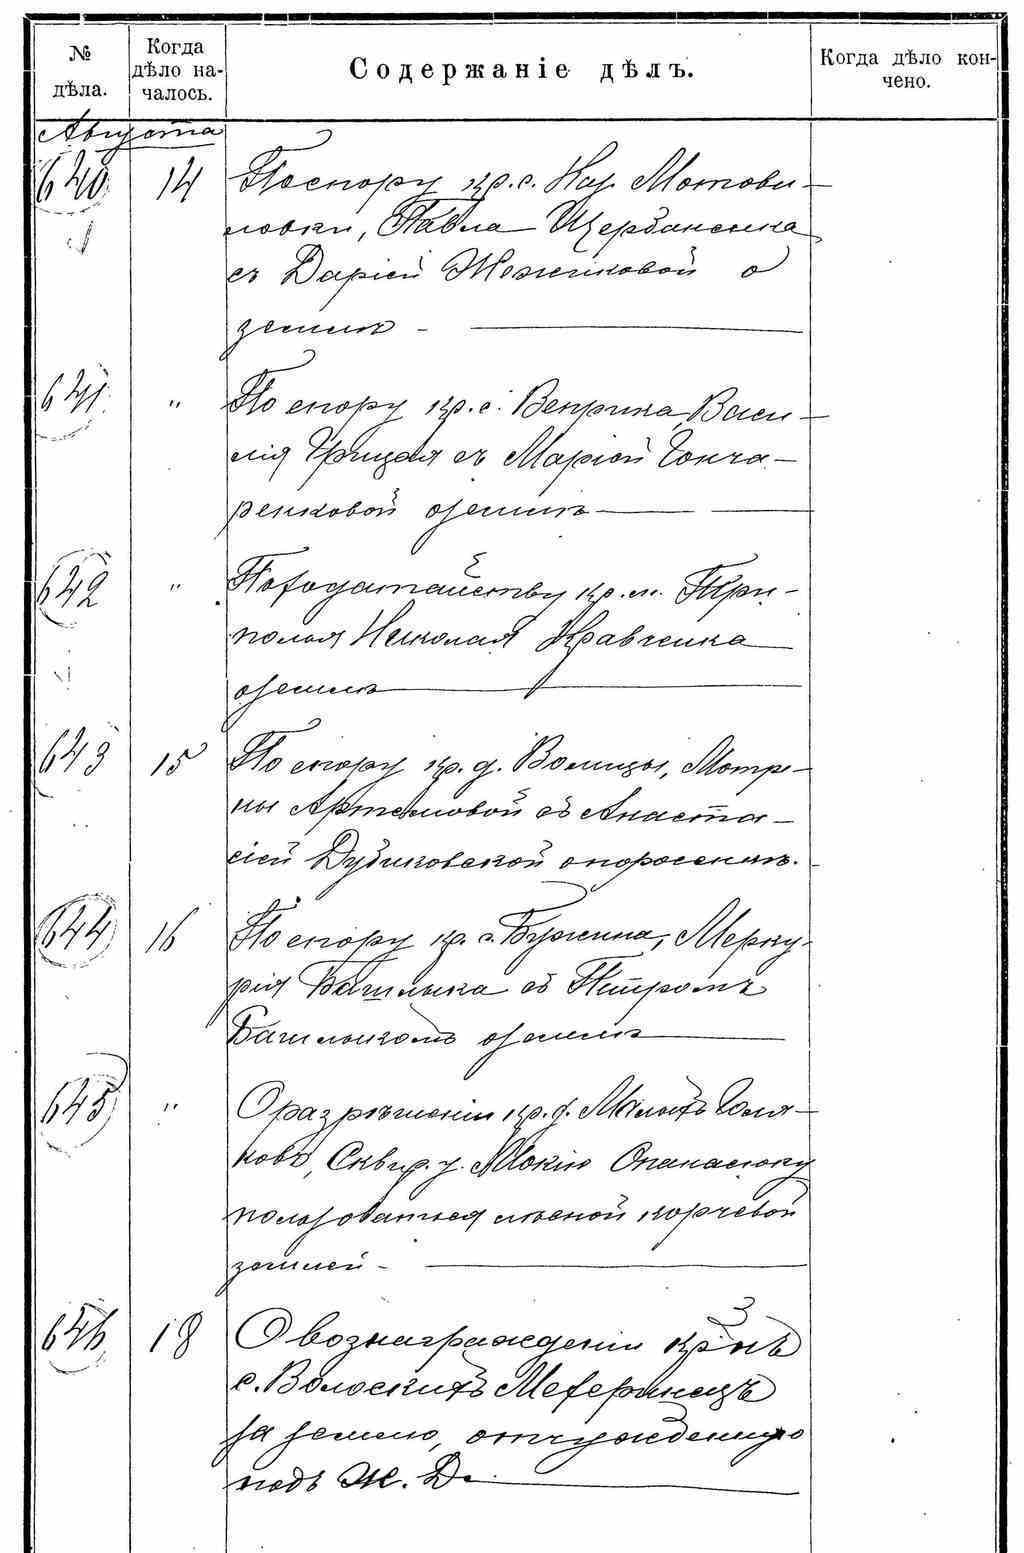 № дѣла.
Когда дѣло началось.
Содержаніе дѣлъ.
Когда дѣло кончено.
Августа
640 14 По спору кр. с. Мотови-
ловки, Павла Щербаненка
съ Даріей Можчиковой о
землѣ -
641 " По спору кр. с. Веприка, Васи-
лія Грицая съ Маріей Гонча-
ренковой о землѣ
642 " По ходатайству кр. м. Три-
полья Николая Кравченка
о землѣ
643 15 По спору кр. д. Волицы, Мотре-
ны Артемовой съ Анаста-
сіей Дубиковской о поросенкѣ.
644 16 По спору кр. с. Бужина, Мерку-
рія Багилька съ Петромъ
Багилькомъ о землѣ
645 " О разрѣшеніи кр. д. Малыхъ Голя-
ковъ, Сквир. у. Мокію Опанасюку
пользоваться лѣсной корчевой
землей -
646 18 О вознагражденіи кр-нъ
с. Волоскихъ Мехеринецъ
за землю, отчужденную
подъ Ж. Д.